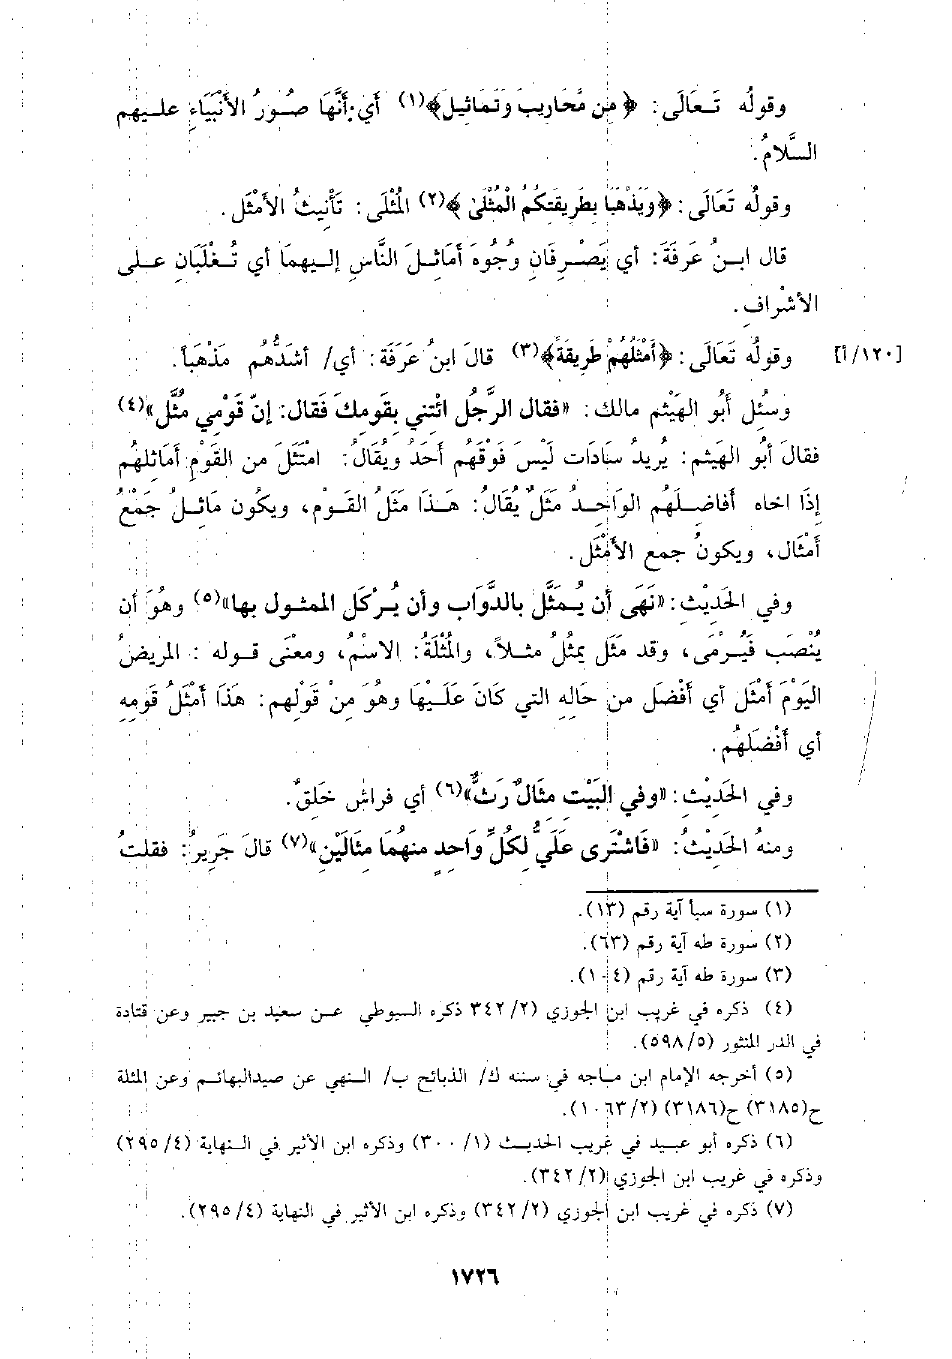 وقولُه تَعَالَى: ﴿مِن مَّحَارِيبَ وَتَمَاثِيلَ﴾(١) أي: أَنَّهَا صُوَرُ الأَنْبَيَاءِ عليهم
السَّلامُ.
وقولُه تَعَالَى: ﴿وَيَذْهَبَا بِطَرِيقَتِكُمُ الْمُثْلَى﴾(٢) المُثْلَى: تَأْنيثُ الأمْثَل.
قال ابنُ عَرَفَةَ: أي يَصْرِفَانِ وُجُوهَ أمَاثِلَ النَّاسِ إليهمَا أي تُغْلَبَانِ على
الأشْراف.
[١٢٠/أ] وقولُه تَعَالَى: ﴿أَمْثَلُهُمْ طَرِيقَةً﴾(٣) قالَ ابنُ عَرَفَة: أي/ أشَدُّهُم مَذْهَباً.
وسُئِل أبُو الهَيْثم مالك: «فقال الرَّجُل ائْتني بقَومكَ فَقال: إنّ قَوْمي مُثُل»(٤)
فقالَ أبُو الهَيثم: يُريدُ سَادَات لَيْسَ فَوْقَهُم أحَدُ ويُقَالُ: امْتَثَلَ من القَوْمِ أمَاثلهُم
إذَا اخاه أفَاضلَهُم الوَاحِدُ مَثَلٌ يُقَالُ: هَذَا مَثَلُ القَوْم، ويكون مَاثلُ جَمْعُ
أمْثَال، ويكونُ جمع الأمْثَل.
وفي الحَديْث: «نَهَى أن يُمَثَّل بالدَّوَاب وأن يُرْكَل الممثول بها»(٥) وهُوَ أن
يُنْصَب فَيُرْمَى، وقد مَثَل يمثُلُ مثلاً، والمُثْلَةُ: الاسْمُ، ومعْنَى قوله : المريضُ
اليَوْمَ أمْثَل أي أفْضَل من حَالِهِ التي كَانَ عَلَيْهَا وهُوَ مِنْ قَوْلِهم: هَذَا أمْثَلُ قَومِهِ
أي أفْضَلهُم.
وفي الحَديْث: «وفي البَيْت مثَالٌ رَثٌّ»(٦) أي فراش خَلِقٌ.
ومنهُ الحَديْثُ: «فَاشْتَرى عَلَيٌّ لكُلِّ وَاحِدٍ منهُمَا مثَالَيْنِ»(٧) قالَ جَريرٌ: فقلتُ
(١) سورة سبأ آية رقم (١٣).
(٢) سورة طه آية رقم (٦٣).
(٣) سورة طه آية رقم (١٠٤).
(٤) ذكره في غريب ابن الجوزي (٣٤٢/٢ ذكره السيوطي عن سعيد بن جبير وعن قتادة
في الدر المنثور (٥٩٨/٥).
(٥) أخرجه الإمام ابن ماجه في سننه ك/ الذبائح ب/ النهي عن صيدالبهائم وعن المثلة
ح(٣١٨٥) ح(٣١٨٦) (١٠٦٣/٢).
(٦) ذكره أبو عبيد في غريب الحديث (٣٠٠/١) وذكره ابن الأثير في النهاية (٢٩٥/٤)
وذكره في غريب ابن الجوزي (٣٤٢/٢).
(٧) ذكره في غريب ابن الجوزي (٣٤٢/٢) وذكره ابن الأثير في النهاية (٢٩٥/٤).
١٧٢٦